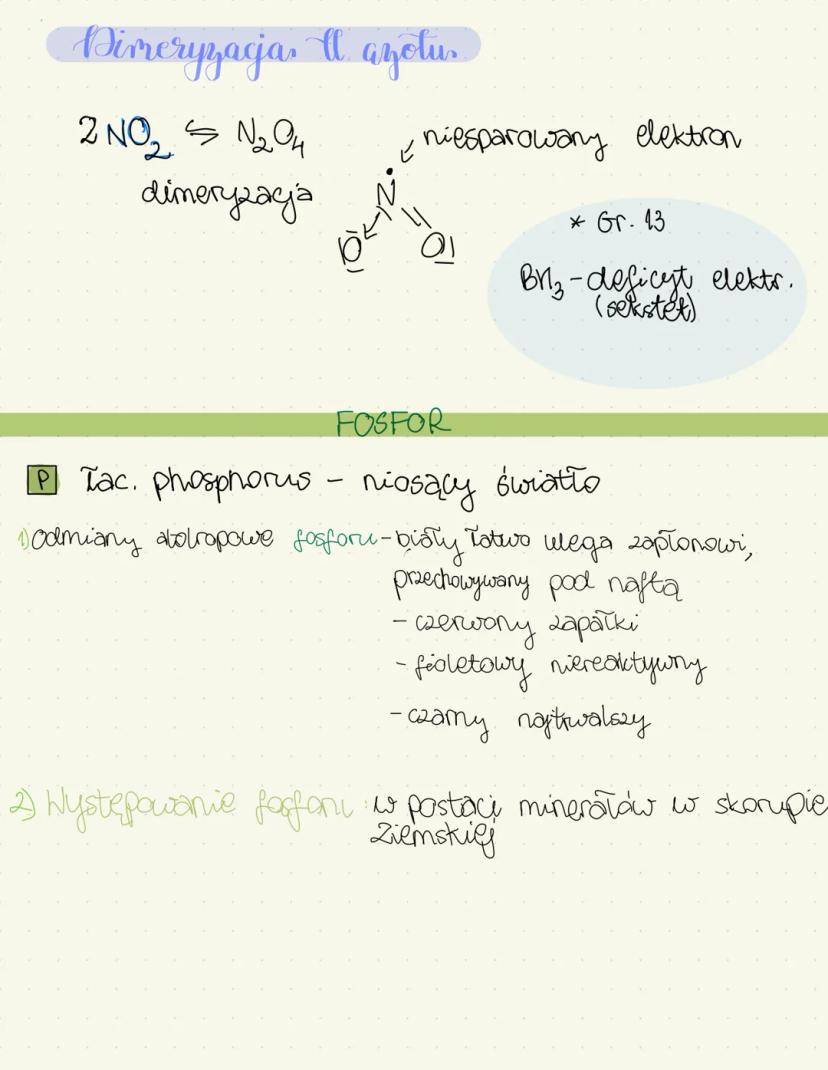 Dimeryzacja tl. azotu.
2 NO₂ ⇋ N₂O₄
niesparowany elektron
dimeryzacja
N
O O
* Gr. 13
BH₃ - deficyt elektr.
(sekstet)
FOSFOR
P łac. phosphorus - niosący światło
1) Odmiany alotropowe fosforu - biały łatwo ulega zapłonowi,
przechowywany pod naftą
- czerwony zapałki
- fioletowy niereaktywny
- czarny najtrwalszy
2) Występowanie fosforu: w postaci minerałów w skorupie
ziemskiej